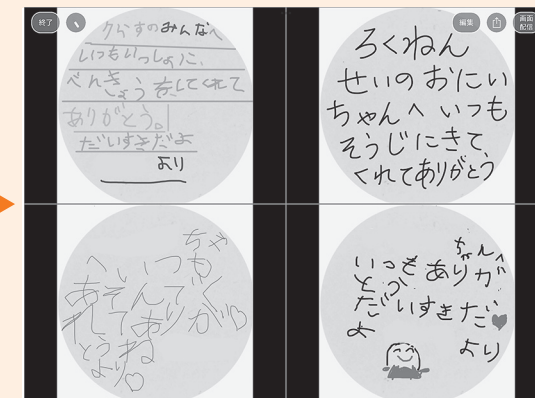 終了
編集
画面
配信
くらすのみんなへ
いつもいっしょに、
べんきょうをしてくれて
ありがとう。!
だいすきだよ
より
ろくねん
せいのおにい
ちゃんへ いつも
そうじにきて
くれてありがとう
ちゃ
へいつも
あそんでく
れてありが♡
とうね
より♡
ちゃんへ
いつもありが
とう
だいすきだ♥
よ
より